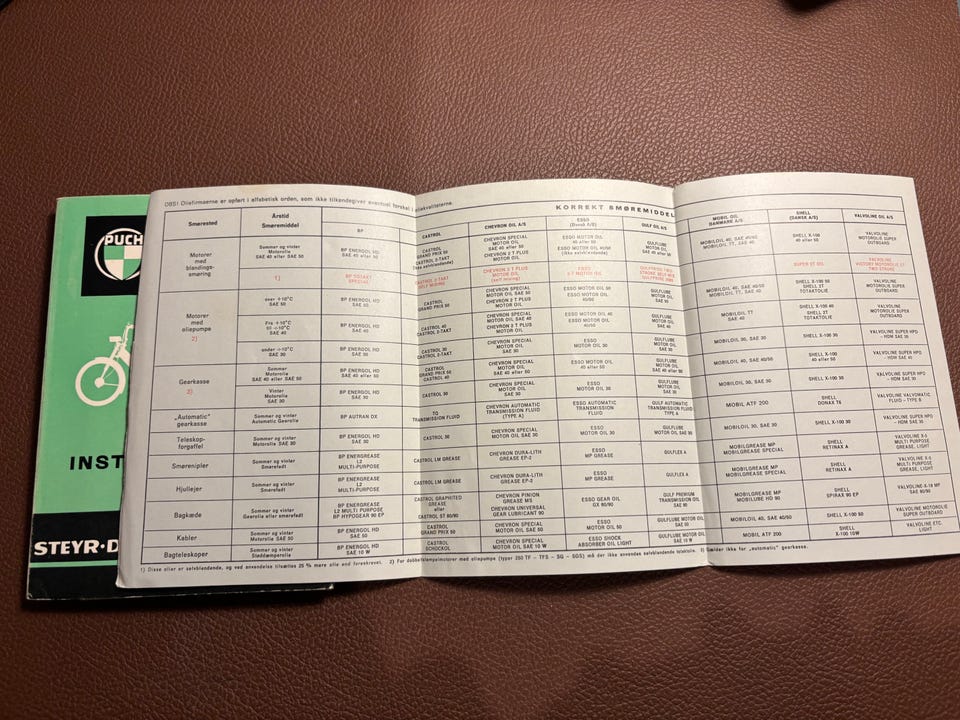 PUCH
INST
STEYR-D
OBS! Oliefirmaerne er opført i alfabetisk orden, som ikke tilkendegiver eventuel forskel i oliekvaliteterne.
KORREKT SMØREMIDDEL
Smørested
Årstid
Smøremiddel
BP
CASTROL
CHEVRON OIL A/S
ESSO
(Dansk A/S)
GULF OIL A/S
MOBIL OIL
DANMARK A/S
SHELL
(DANSK A/S)
VALVOLINE OIL A/S
Motorer
med
blandings-
smøring
Sommer og vinter
Motorolie
SAE 40 eller SAE 50
BP ENERGOL HD
SAE 40 eller 50
CASTROL
GRAND PRIX 50
CASTROL 2-TAKT
(ikke selvblandende)
CHEVRON SPECIAL
MOTOR OIL
SAE 40 eller 50
CHEVRON 2 T PLUS
MOTOR OIL
ESSO MOTOR OIL
40 eller 50
ESSO MOTOR OIL 40/50
(ikke selvblandende)
GULFLUBE
MOTOR OIL
SAE 40 eller 50
MOBILOIL 40, SAE 40/50
MOBILOIL TT, SAE 40
SHELL X-100
40 eller 50
VALVOLINE
MOTOROLIE SUPER
OUTBOARD
1)
BP TOTAKT
SPECIAL
CASTROL 2-TAKT
SELF MIXING
CHEVRON 2 T PLUS
MOTOR OIL
(self mixing)
ESSO
2-T MOTOR OIL
SUPER 2T OIL
VALVOLINE
VICTORY MOTOROLIE 2T
TWO STROKE
Motorer
med
oliepumpe
2)
over +10°C
SAE 50
BP ENERGOL HD
SAE 50
CASTROL
GRAND PRIX 50
CHEVRON SPECIAL
MOTOR OIL SAE 50
CHEVRON 2 T PLUS
MOTOR OIL
ESSO MOTOR OIL 50
ESSO MOTOR OIL
40/50
GULFLUBE
MOTOR OIL
SAE 50
MOBILOIL 40, SAE 40/50
MOBILOIL TT, SAE 40
SHELL X-100 50
SHELL 2T
TOTAKTOLIE
VALVOLINE
MOTOROLIE SUPER
OUTBOARD
Fra +10°C
til -10°C
SAE 40
BP ENERGOL HD
SAE 40
CASTROL 40
CASTROL 2-TAKT
CHEVRON SPECIAL
MOTOR OIL SAE 40
CHEVRON 2 T PLUS
MOTOR OIL
ESSO MOTOR OIL 40
ESSO MOTOR OIL
40/50
GULFLUBE
MOTOR OIL
SAE 40
MOBILOIL TT
SAE 40
SHELL X-100 40
SHELL 2T
TOTAKTOLIE
VALVOLINE
MOTOROLIE SUPER
OUTBOARD
under -10°C
SAE 30
BP ENERGOL HD
SAE 30
CASTROL 30
CASTROL 2-TAKT
CHEVRON SPECIAL
MOTOR OIL
SAE 30
ESSO
MOTOR OIL 30
GULFLUBE
MOTOR OIL
SAE 30
MOBILOIL 30, SAE 30
SHELL X-100 30
VALVOLINE SUPER HPO
- HDM SAE 30
Gearkasse
3)
Sommer
Motorolie
SAE 40 eller SAE 50
BP ENERGOL HD
SAE 40 eller 50
CASTROL
GRAND PRIX 50
CASTROL 40
CHEVRON SPECIAL
MOTOR OIL
SAE 40 eller 50
ESSO MOTOR OIL
40 eller 50
GULFLUBE
MOTOR OIL
SAE 40 eller 50
MOBILOIL 40, SAE 40/50
SHELL X-100
40 eller 50
VALVOLINE SUPER HPO
Vinter
Motorolie
SAE 30
BP ENERGOL HD
SAE 30
CASTROL 30
CHEVRON SPECIAL
MOTOR OIL
SAE 30
ESSO
MOTOR OIL 30
GULFLUBE
MOTOR OIL
SAE 30
MOBILOIL 30, SAE 30
SHELL X-100 30
VALVOLINE SUPER HPO
- HDM SAE 30
„Automatic"
gearkasse
Sommer og vinter
Automatic Gearolie
BP AUTRAN DX
TQ
TRANSMISSION FLUID
CHEVRON AUTOMATIC
TRANSMISSION FLUID
(TYPE A)
ESSO
AUTOMATIC
TRANSMISSION
FLUID
GULF AUTOMATIC
TRANSMISSION FLUID
TYPE A
MOBIL ATF 200
SHELL
DONAX T6
VALVOLINE VALVOMATIC
FLUID - TYPE B
Teleskop-
forgaffel
Sommer og vinter
Motorolie SAE 30
BP ENERGOL HD
SAE 30
CASTROL 30
CHEVRON SPECIAL
MOTOR OIL SAE 30
ESSO
MOTOR OIL 30
GULFLUBE
MOTOR OIL
SAE 30
MOBILOIL 30, SAE 30
SHELL X-100 30
VALVOLINE SUPER HPO
- HDM SAE 30
Smørenipler
Sommer og vinter
Smørefedt
BP ENERGREASE
L2
MULTI-PURPOSE
CASTROL LM GREASE
CHEVRON DURA-LITH
GREASE EP-2
ESSO
MP GREASE
GULFLEX A
MOBILGREASE MP
MOBILGREASE SPECIAL
SHELL
RETINAX A
VALVOLINE X-5
MULTI PURPOSE
GREASE, LIGHT
Hjullejer
Sommer og vinter
Smørefedt
BP ENERGREASE
L2
MULTI-PURPOSE
CASTROL LM GREASE
CHEVRON DURA-LITH
GREASE EP-2
ESSO
MP GREASE
GULFLEX A
MOBILGREASE MP
MOBILGREASE SPECIAL
SHELL
RETINAX A
VALVOLINE X-5
MULTI PURPOSE
GREASE, LIGHT
Bagkæde
Sommer og vinter
Gearolie eller smørefedt
BP ENERGREASE
L2 MULTI PURPOSE
BP HYPOGEAR 90 EP
CASTROL GRAPHITED
GREASE
eller
CASTROL ST 80/90
CHEVRON PINION
GREASE MS
CHEVRON UNIVERSAL
GEAR LUBRICANT 90
ESSO GEAR OIL
GX 80/90
GULF PREMIUM
TRANSMISSION OIL
SAE 90
MOBILGREASE MP
MOBILUBE HD 90
SHELL
SPIRAX 90 EP
VALVOLINE-X-18 MP
SAE 80/90
Kabler
Sommer og vinter
Motorolie SAE 50
BP ENERGOL HD
SAE 50
CASTROL
GRAND PRIX 50
CHEVRON SPECIAL
MOTOR OIL SAE 50
ESSO
MOTOR OIL 50
GULFLUBE MOTOR OIL
SAE 50
MOBILOIL 40, SAE 40/50
SHELL X-100 50
VALVOLINE MOTOROLIE
SUPER OUTBOARD
Bagteleskoper
Sommer og vinter
Støddæmperolie
BP ENERGOL HD
SAE 10 W
CASTROL
SCHOCKOL
CHEVRON SPECIAL
MOTOR OIL SAE 10 W
ESSO SHOCK
ABSORBER OIL LIGHT
GULFLUBE MOTOR OIL
SAE 10 W
MOBIL ATF 200
SHELL
X-100 10W
VALVOLINE ETC.
LIGHT
1) Disse olier er selvblandende, og ved anvendelse tilsættes 25 % mere olie end foreskrevet. 2) For dobbeltstempelmotorer med oliepumpe (typer 250 TF - TFS - SG - SGS) må der ikke anvendes selvblandende totaktolie. 3) Gælder ikke for „automatic" gearkasse.